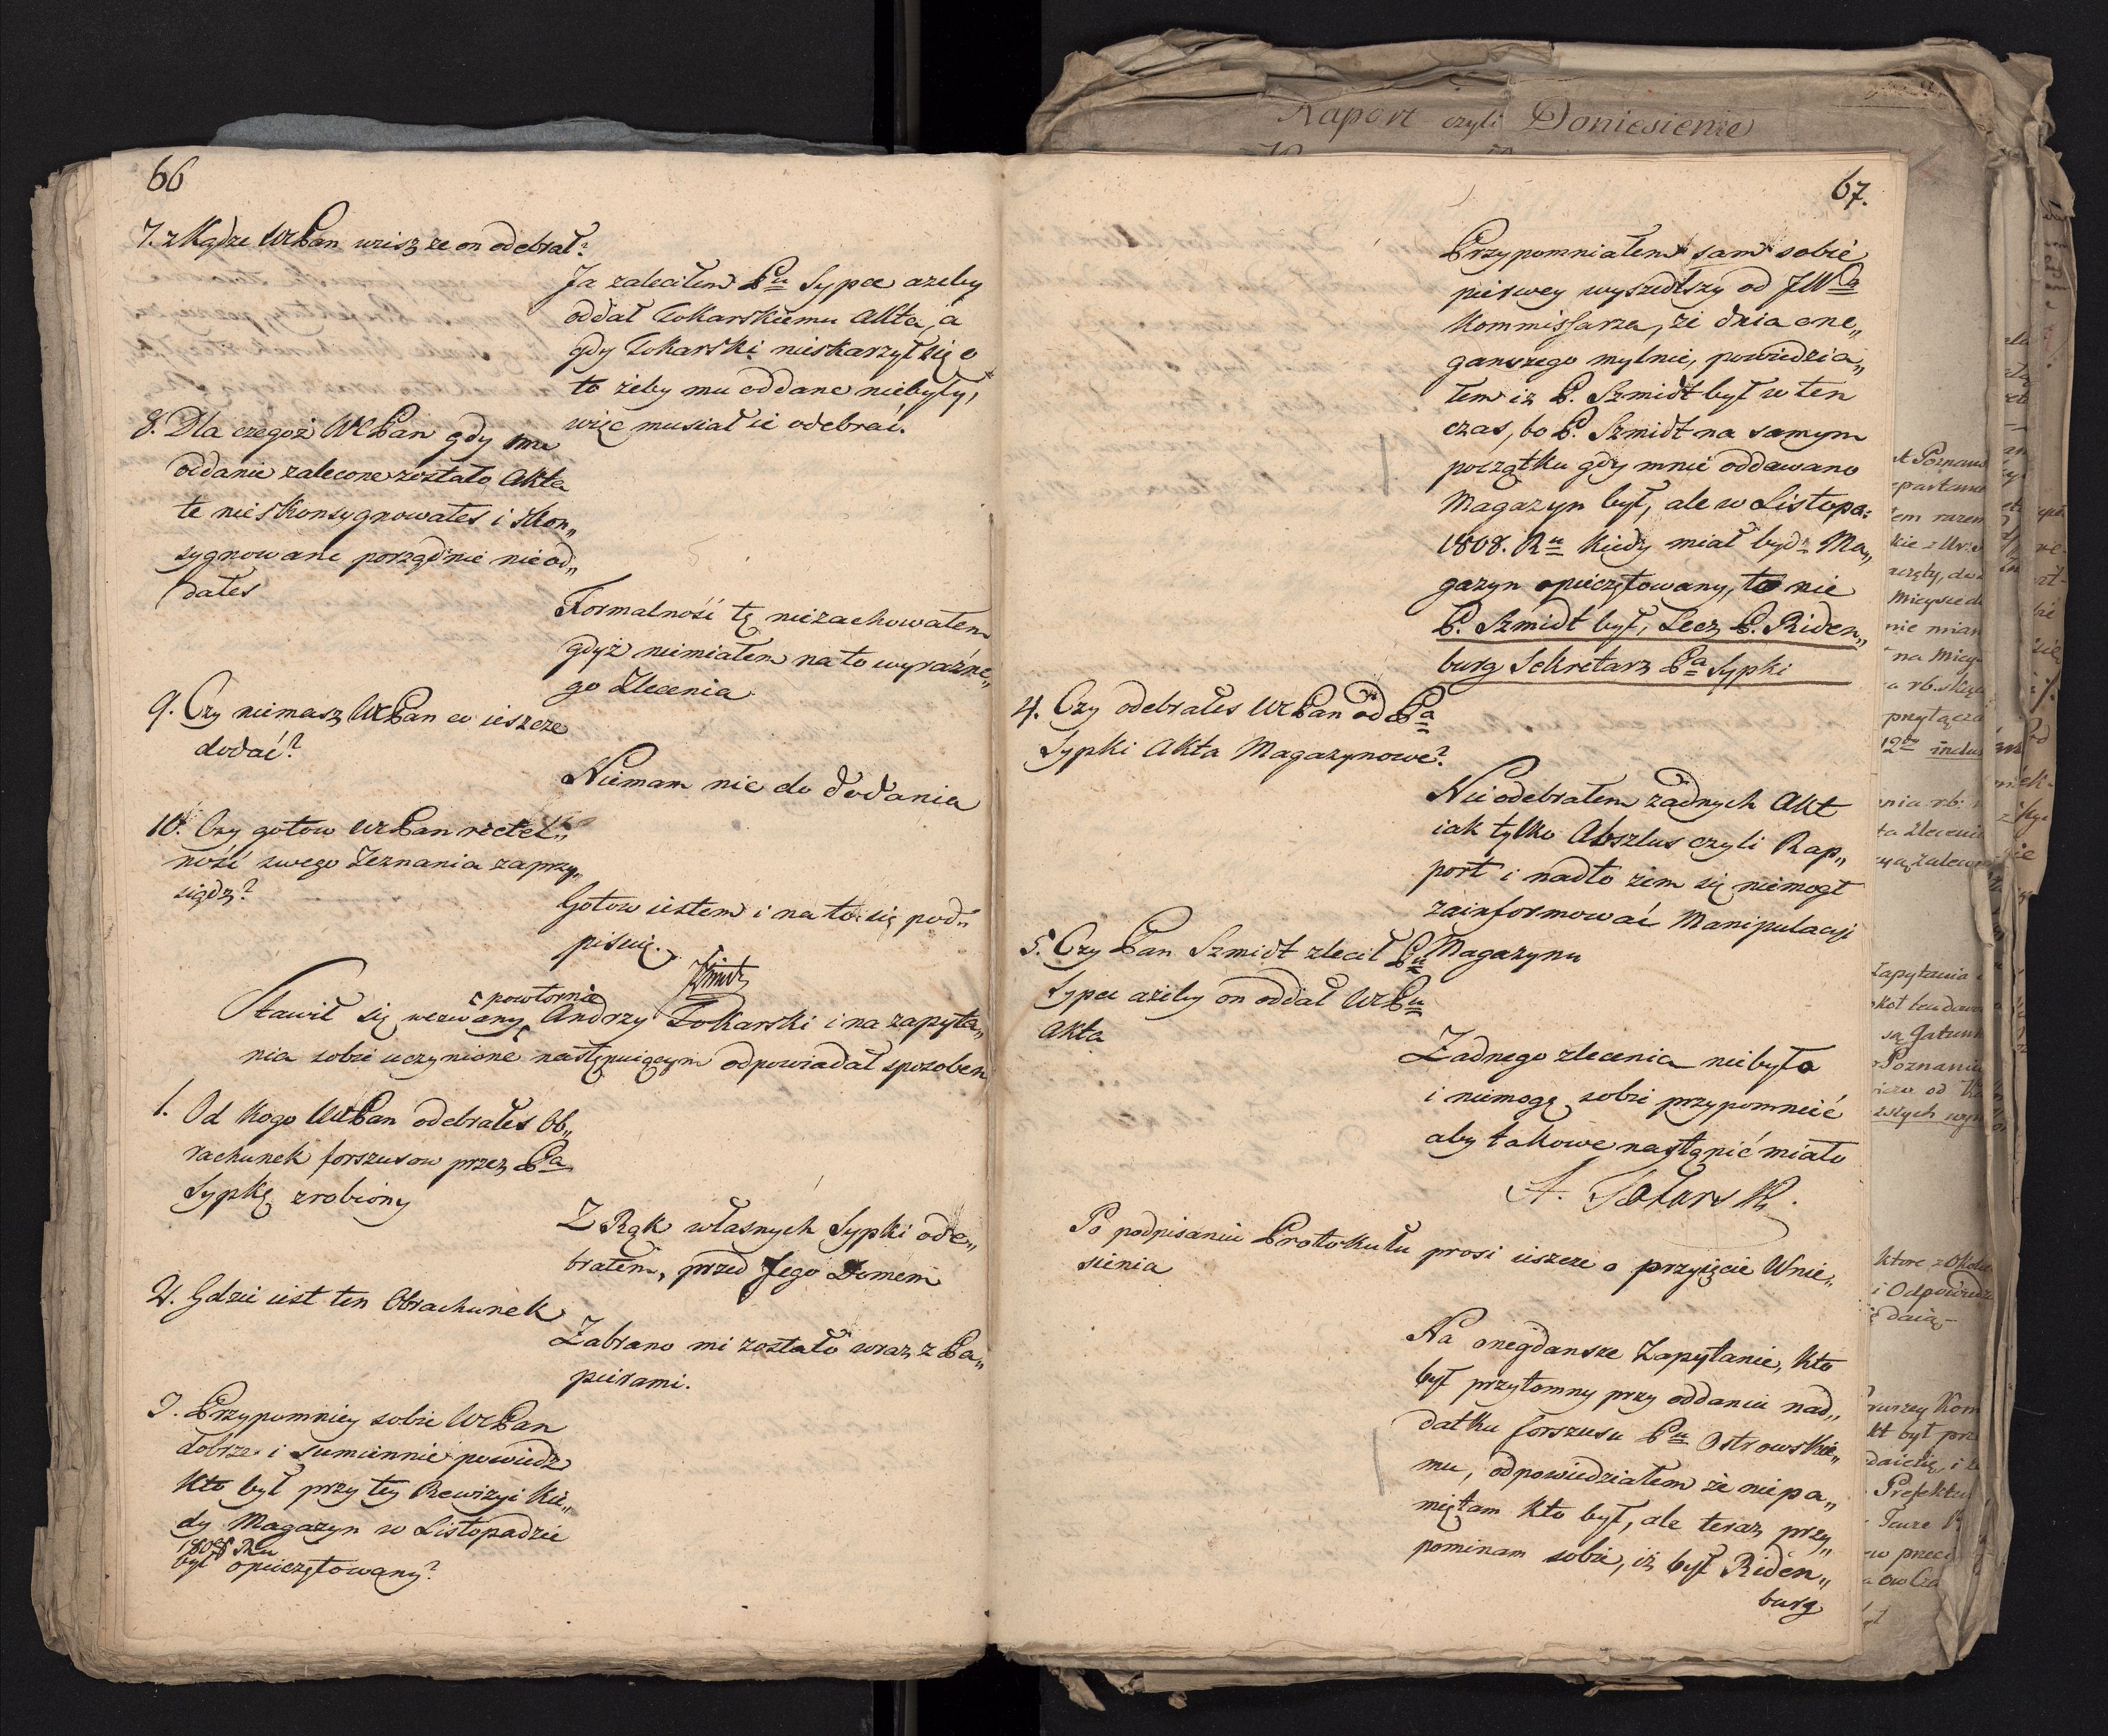 66
7. zkądże WcPan wiesz, że on odebrał?
Ja zaleciłem Pu Sypce azeby
oddał Tokarskiemu Akta, a
gdy Tokarski nieskarzył się o
to żeby mu oddane niebyły,
więc musiał ie odebrać.
8. Dla czegoż WcPan gdy mu
oddanie zalecone zostało Akta
te nie skonsygnowałeś i skon„
sygnowane porządnie nie od„
dałeś
Formalność tę niezachowałem
gdyż niemiałem na to wyraźne„
go zlecenia
9. Czy niemasz WcPan co ieszcze
dodać?
Niemam nic do dodania
10. Czy gotow WcPan rzetel„
ność swego Zeznania zaprzy„
siądz?
Gotow iestem i na to się pod„
pisuię.
powtornie
Stawił się wezwany Andrzy Tokarski i na zapyta„
nia sobie uczynione następuiącym odpowiadał sposobem
1. Od kogo WcPan odebrałeś Ob„
rachunek forszusow przez Pa
Sypkę zrobiony
Z Rąk własnych Sypki ode„
brałem, przed Jego Domem
2. Gdzie iest ten Obrachunek
Zabrano mi zostało wraz z Pa„
pierami.
3. Przypomniey sobie WcPan
dobrze i sumiennie powiedz
kto był przy tey Rewizyi kie„
dy Magazyn w Listopadzie
1808 Ru
był opieczętowany?
67.
Przypomniałem sam sobie
pierwey wyszedłszy od JWPa
Kommissarza, że dnia one„
gdanszego mylnie, powiedzia„
łem iz P. Szmidt był w ten
czas, bo P. Szmidt na samym
początku gdy mnie oddawano
Magazyn był, ale w Listopa:
1808. Ru kiedy miał bydz Ma„
gazyn opieczętowany, to nie
P. Szmidt był, Lecz P. Riden„
burg Sekretarz Pa Sypki
4. Czy odebrałeś WcPan od Pa
Sypki Akta Magazynowe?
Nieodebrałem żadnych Akt
iak tylko Abszlus czyli Rap„
port i nadto żem się niemogł
zainformować Manipulacyi
Magazynu
5. Czy Pan Szmidt zlecił Pu
Sypce ażeby on oddał WcPu
Akta
Żadnego zlecenia niebyło
i niemogę sobie przypomnieć
aby takowe nastąpić miało
A. Tokarski.
Po podpisaniu Protokułu prosi ieszcze o przyięcie Wnie„
sienia
Na onegdansze Zapytanie, kto
był przytomny przy oddaniu nad„
datku forszusu Pu Ostrowskie„
mu, odpowiedziałem że niepa„
miętam kto był, ale teraz przy„
pominam sobie, iż był Riden„
burg
Raport czyli Doniesienie